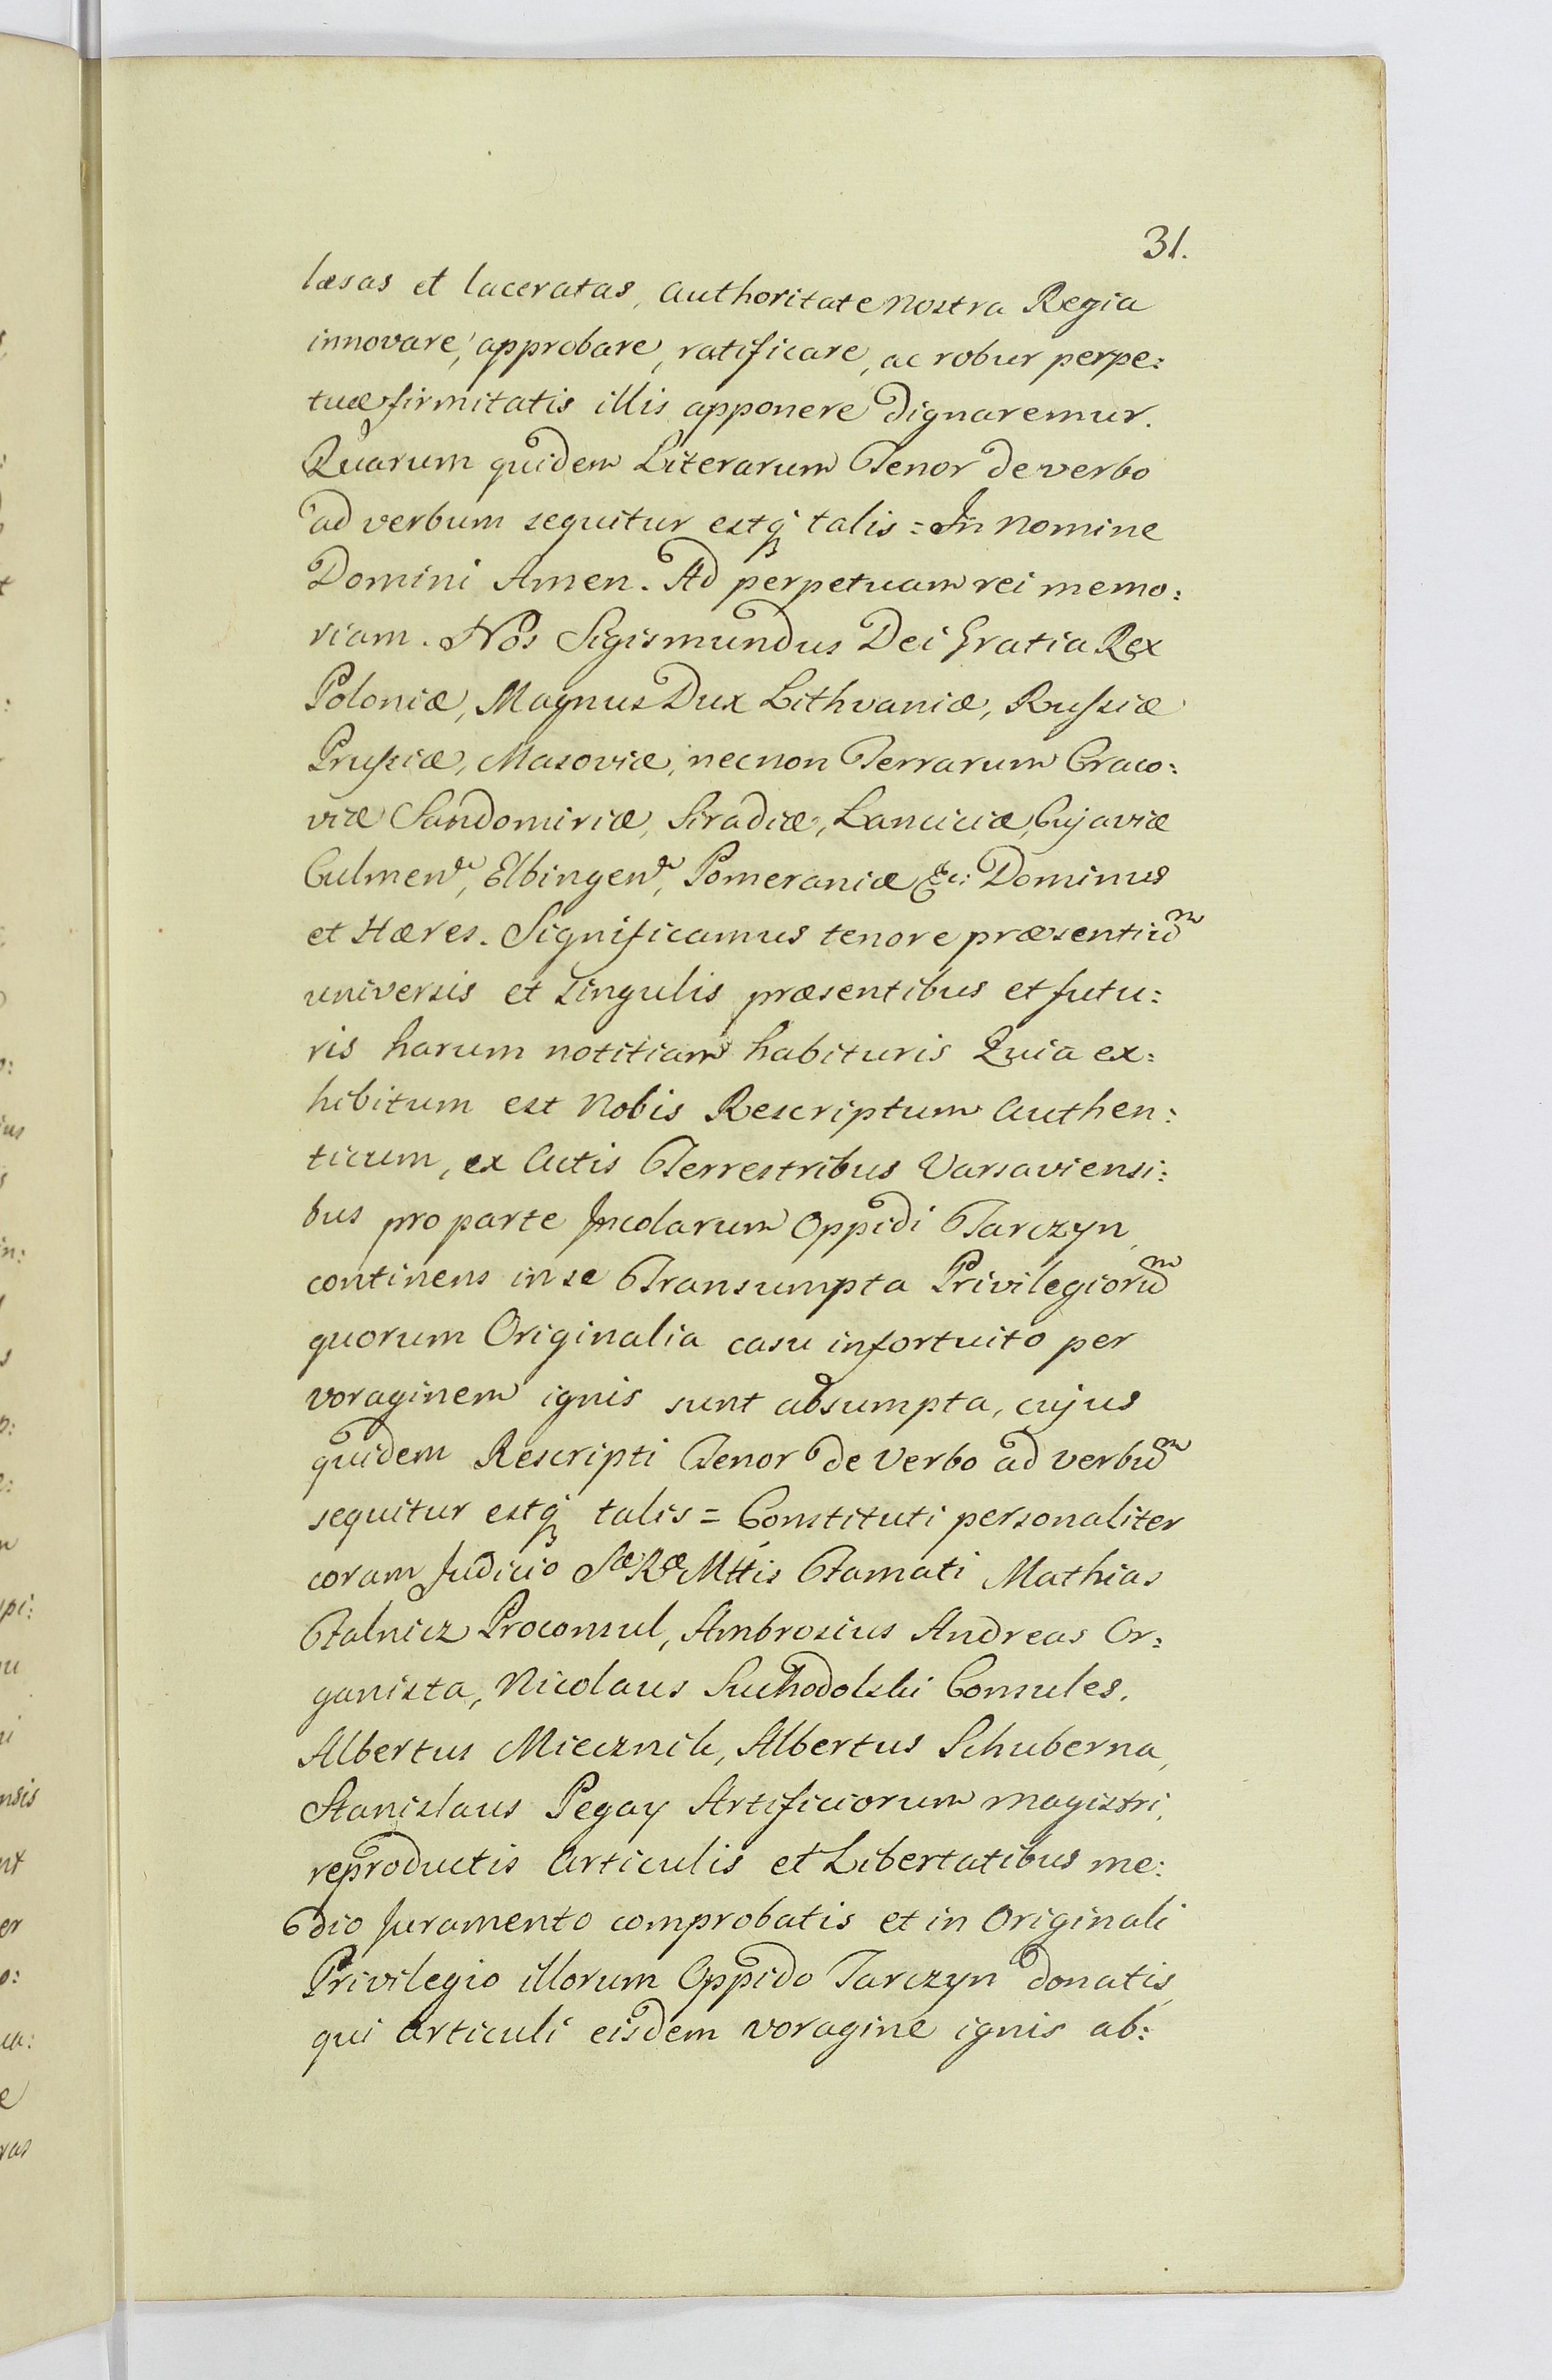 31.
læsas et laceratas, authoritate nostra Regia
innovare, approbare, ratificare, ac robur perpe:
tuæ firmitatis illis apponere dignaremur.
Quarum quidem Literarum Tenor de verbo
ad verbum sequitur estq; talis = In Nomine
Domini Amen. Ad perpetuam rei memo:
riam. Nos Sigismundus Dei Gratia Rex
Poloniæ, Magnus Dux Lithvaniæ, Russiæ
Prussiæ, Masoviæ, necnon Terrarum Craco:
viæ Sandomiriæ, Siradiæ, Lanciciæ, Cujaviæ
Culmen, Elbingen, Pomeraniæ &c: Dominus
et Hæres. Significamus tenore præsentiũ
universis et singulis præsentibus et futu:
ris harum notitiam habituris Quia ex:
hibitum est Nobis Rescriptum authen:
ticum, ex Actis Terrestribus Varsaviensi:
bus pro parte Incolarum Oppidi Tarczyn,
continens in se Transumpta Privilegiorũ
quorum Originalia casu infortuito per
voraginem ignis sunt absumpta, cujus
quidem Rescripti Tenor de Verbo ad verbũ
sequitur estq; talis = Constituti personaliter
coram Judicio Sæ Ræ Mttis Famati Mathias
Falnicz Proconsul, Ambrosius Andreas Or:
ganista, Nicolaus Suchodolski Consules.
Albertus Miecznik, Albertus Schuberna,
Stanislaus Pegay Artificiorum magistri,
reproductis Articulis et Libertatibus me:
dio Juramento comprobatis et in Originali
Privilegio illorum Oppido Tarczyn donatis,
qui Articuli eisdem voragine ignis ab: